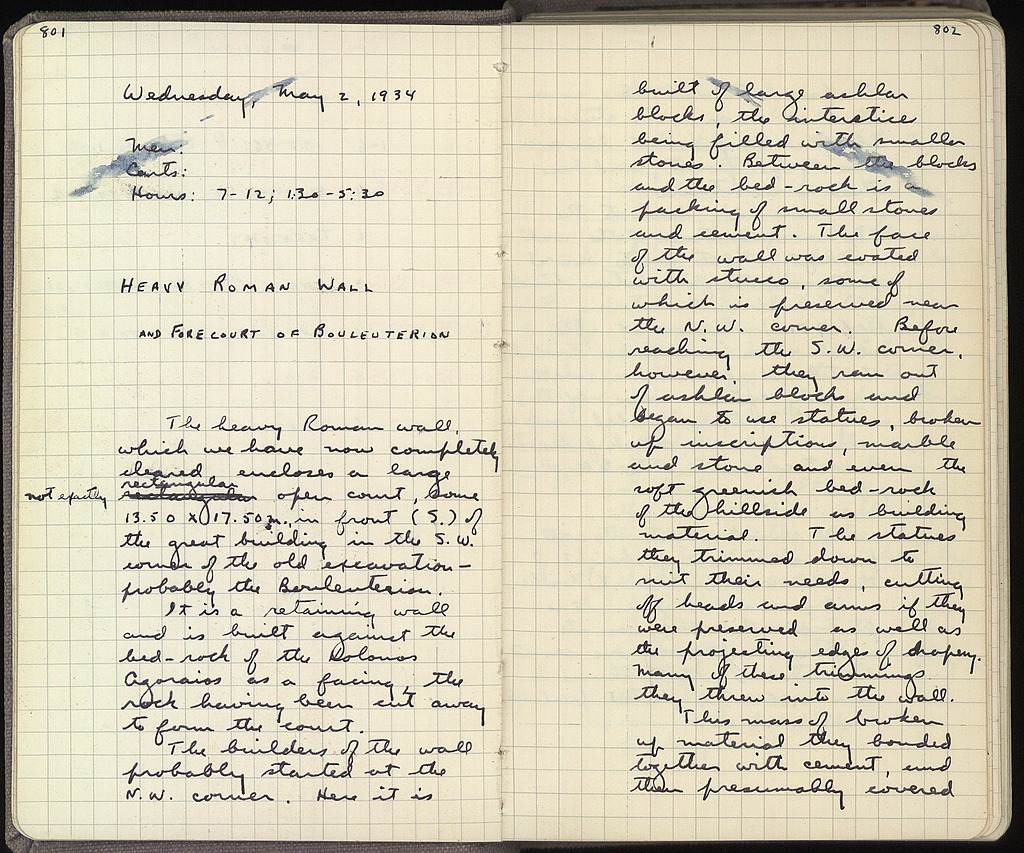 801
Wednesday, May 2, 1934
Men:
Carts:
Hours: 7-12; 1:30-5:30
HEAVY ROMAN WALL
AND FORECOURT OF BOULEUTERION
The heavy Roman wall,
which we have now completely
cleared, encloses a large
rectangular
not exactly rectangular open court, some
13.50 x 17.50 m., in front (S.) of
the great building in the S.W.
corner of the old excavation -
probably the Bouleuterion.
It is a retaining wall
and is built against the
bed-rock of the Kolonos
Agoraios as a facing, the
rock having been cut away
to form the court.
The builders of the wall
probably started at the
N.W. corner. Here it is
802
built of large ashlar
blocks, the interstices
being filled with smaller
stones. Between the blocks
and the bed-rock is a
packing of small stones
and cement. The face
of the wall was coated
with stucco, some of
which is preserved near
the N.W. corner. Before
reaching the S.W. corner,
however, they ran out
of ashlar blocks and
began to use statues, broken
up inscriptions, marble
and stone and even the
soft greenish bed-rock
of the hillside as building
material. The statues
they trimmed down to
suit their needs, cutting
off heads and arms if they
were preserved as well as
the projecting edges of drapery.
Many of these trimmings
they threw into the wall.
This mass of broken
up material they bonded
together with cement, and
then presumably covered